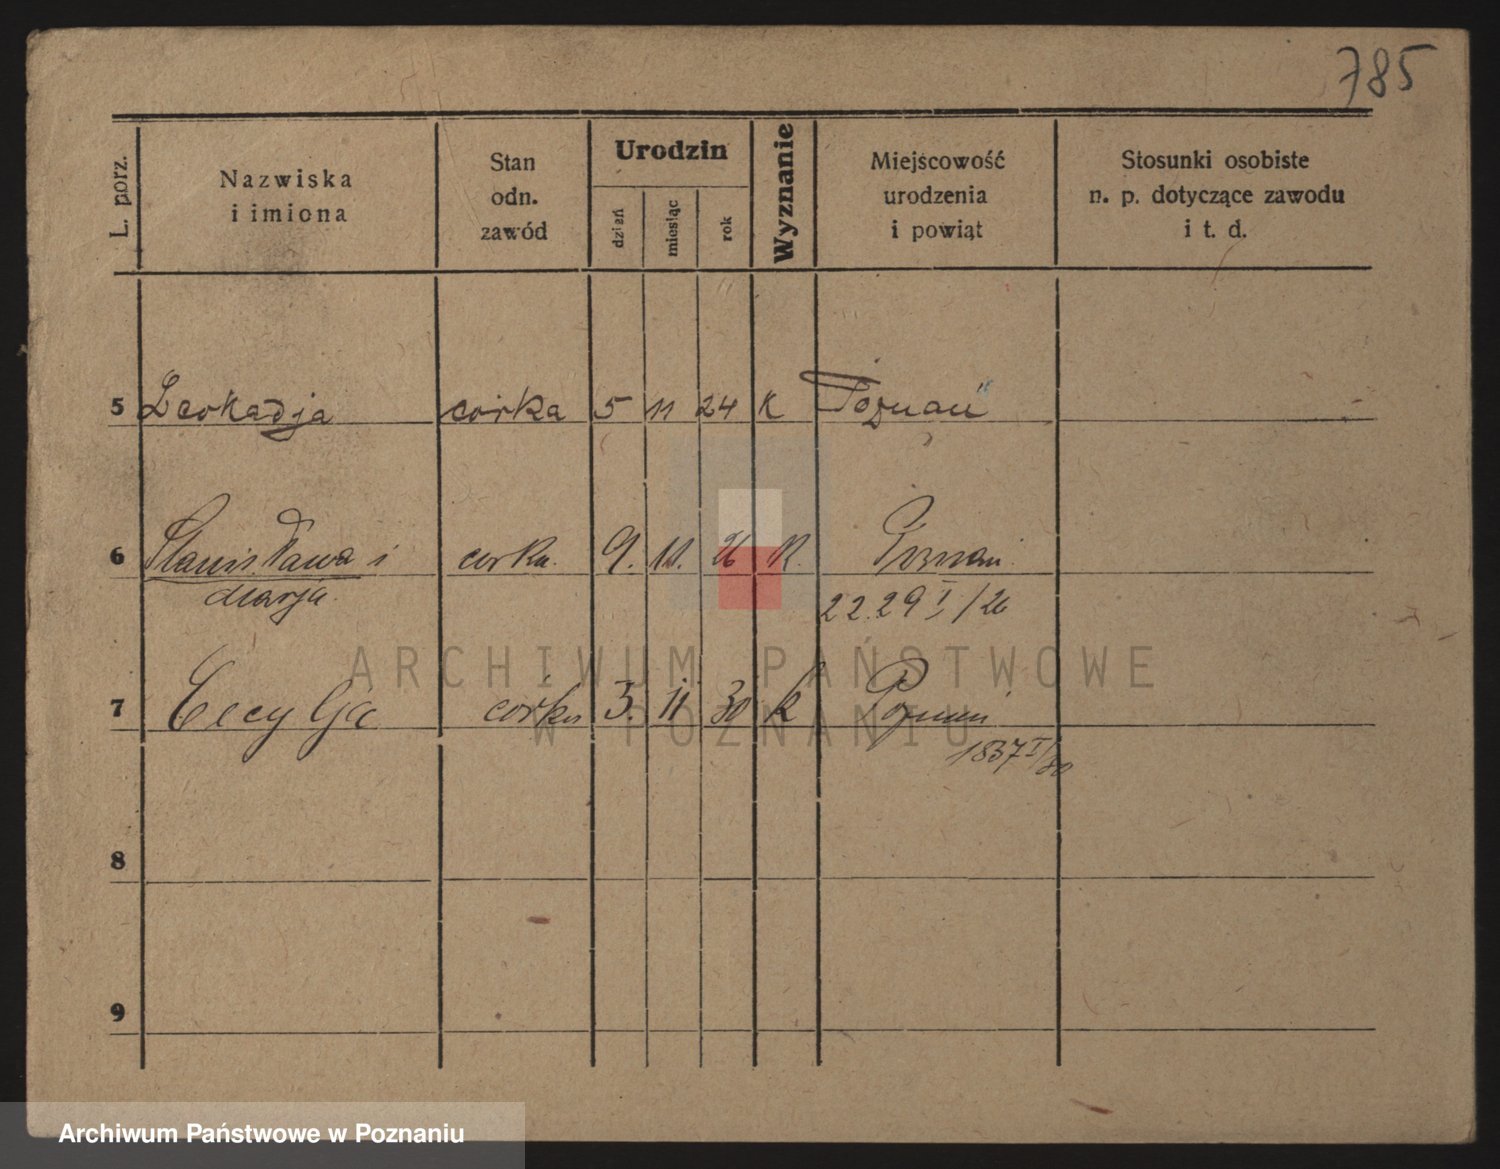 785
L. porz.
Nazwiska
i imiona
Stan
odn.
zawód
Urodzin
dzień
miesiąc
rok
Wyznanie
Miejscowość
urodzenia
i powiąt
Stosunki osobiste
n. p. dotyczące zawodu
i t. d.
5 Leokadja córka 5 11 24 K Poznań
6 Stanisława i corka. 9. 11. 26 K. Poznań
Marja 22.29 I/26
7 Cecylja córka 3. 11 30 k Poznań
1837 I/30
8
9
ARCHIWUM PAŃSTWOWE
W POZNANIU
Archiwum Państwowe w Poznaniu